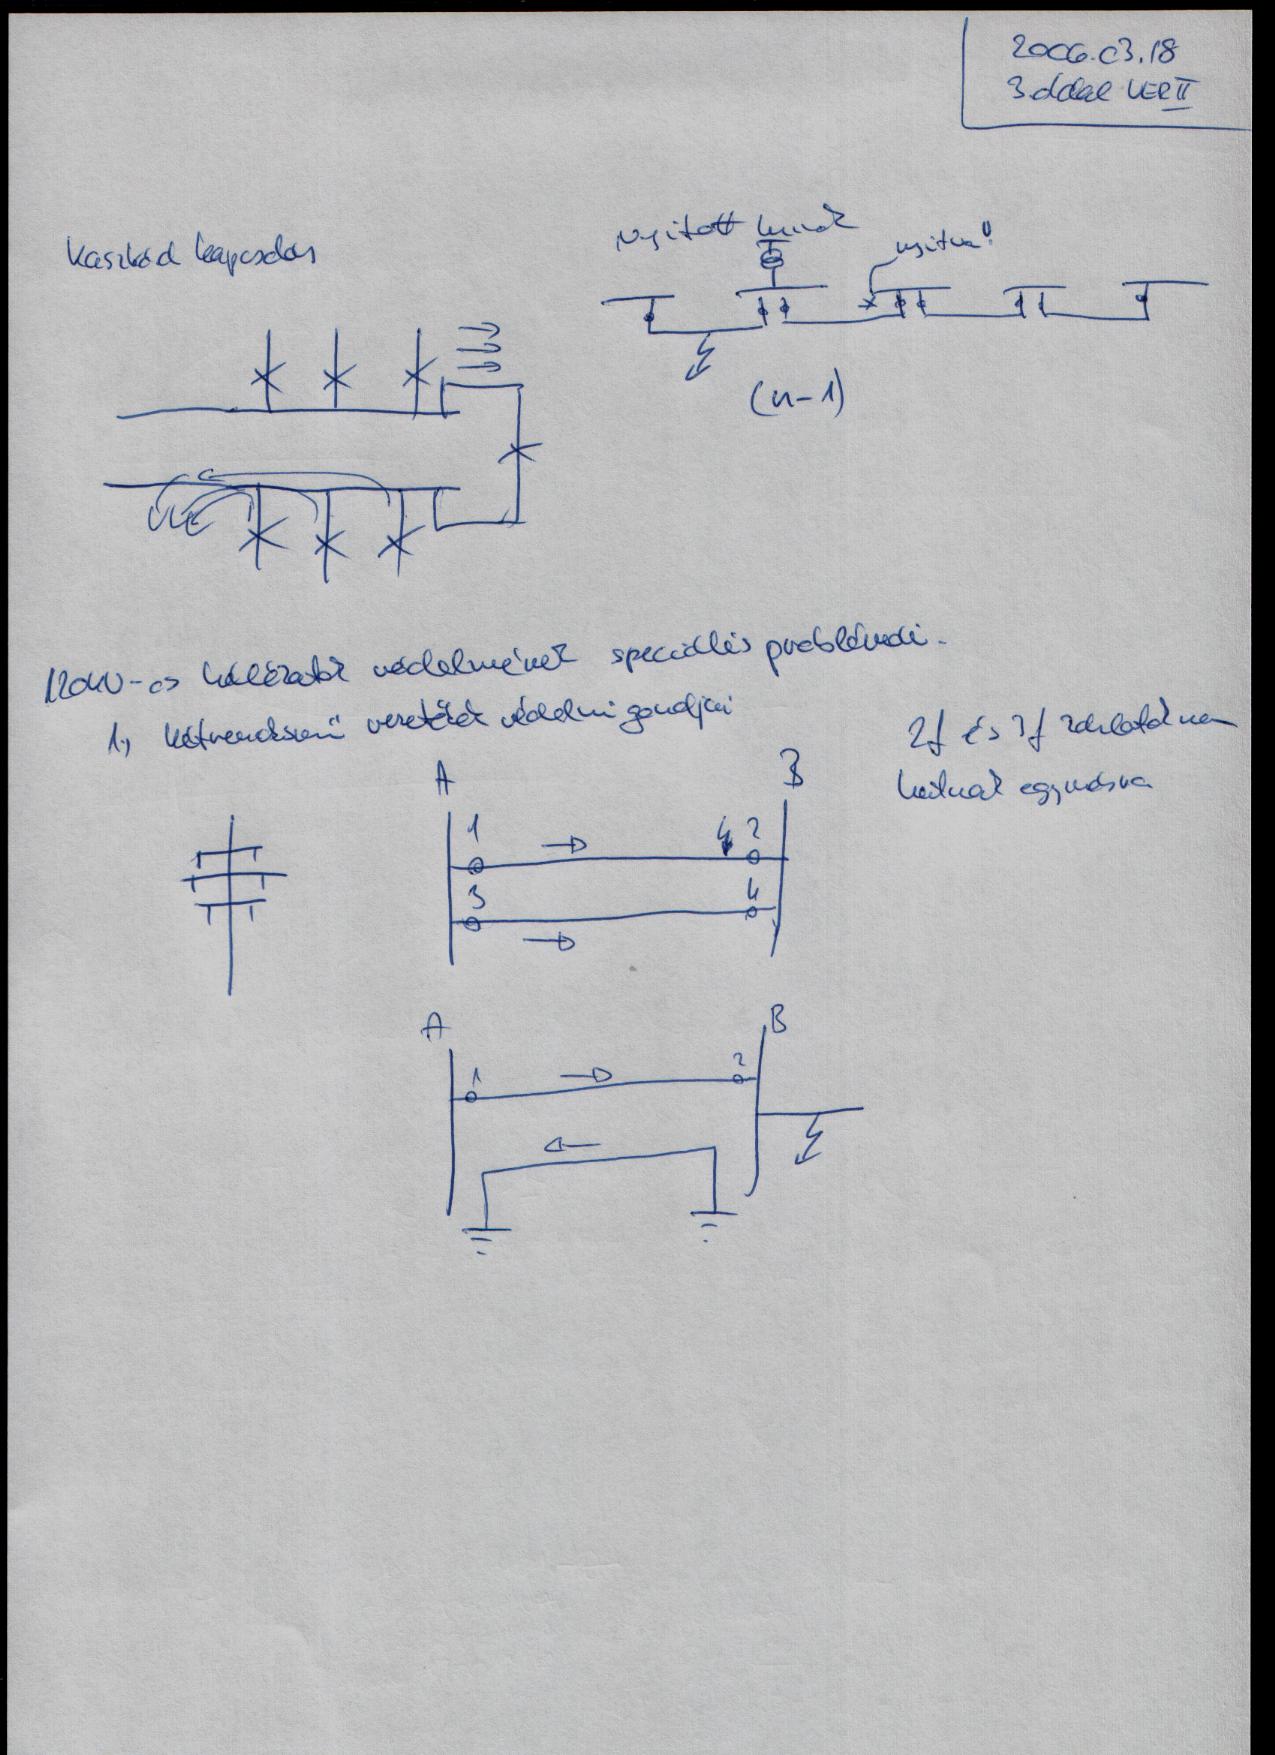 2006.03.18
3. oldal VER II
Kaszkád kapcsolás
Nyitott hurok
nyitva!
(n-1)
120kV-os hálózatok védelmének speciális problémái.
1, kétrendszerű vezetékek védelmi gondjai
2f és 3f zárlatok nem
hatnak egymásra
A
B
1
2
3
4
A
B
1
2